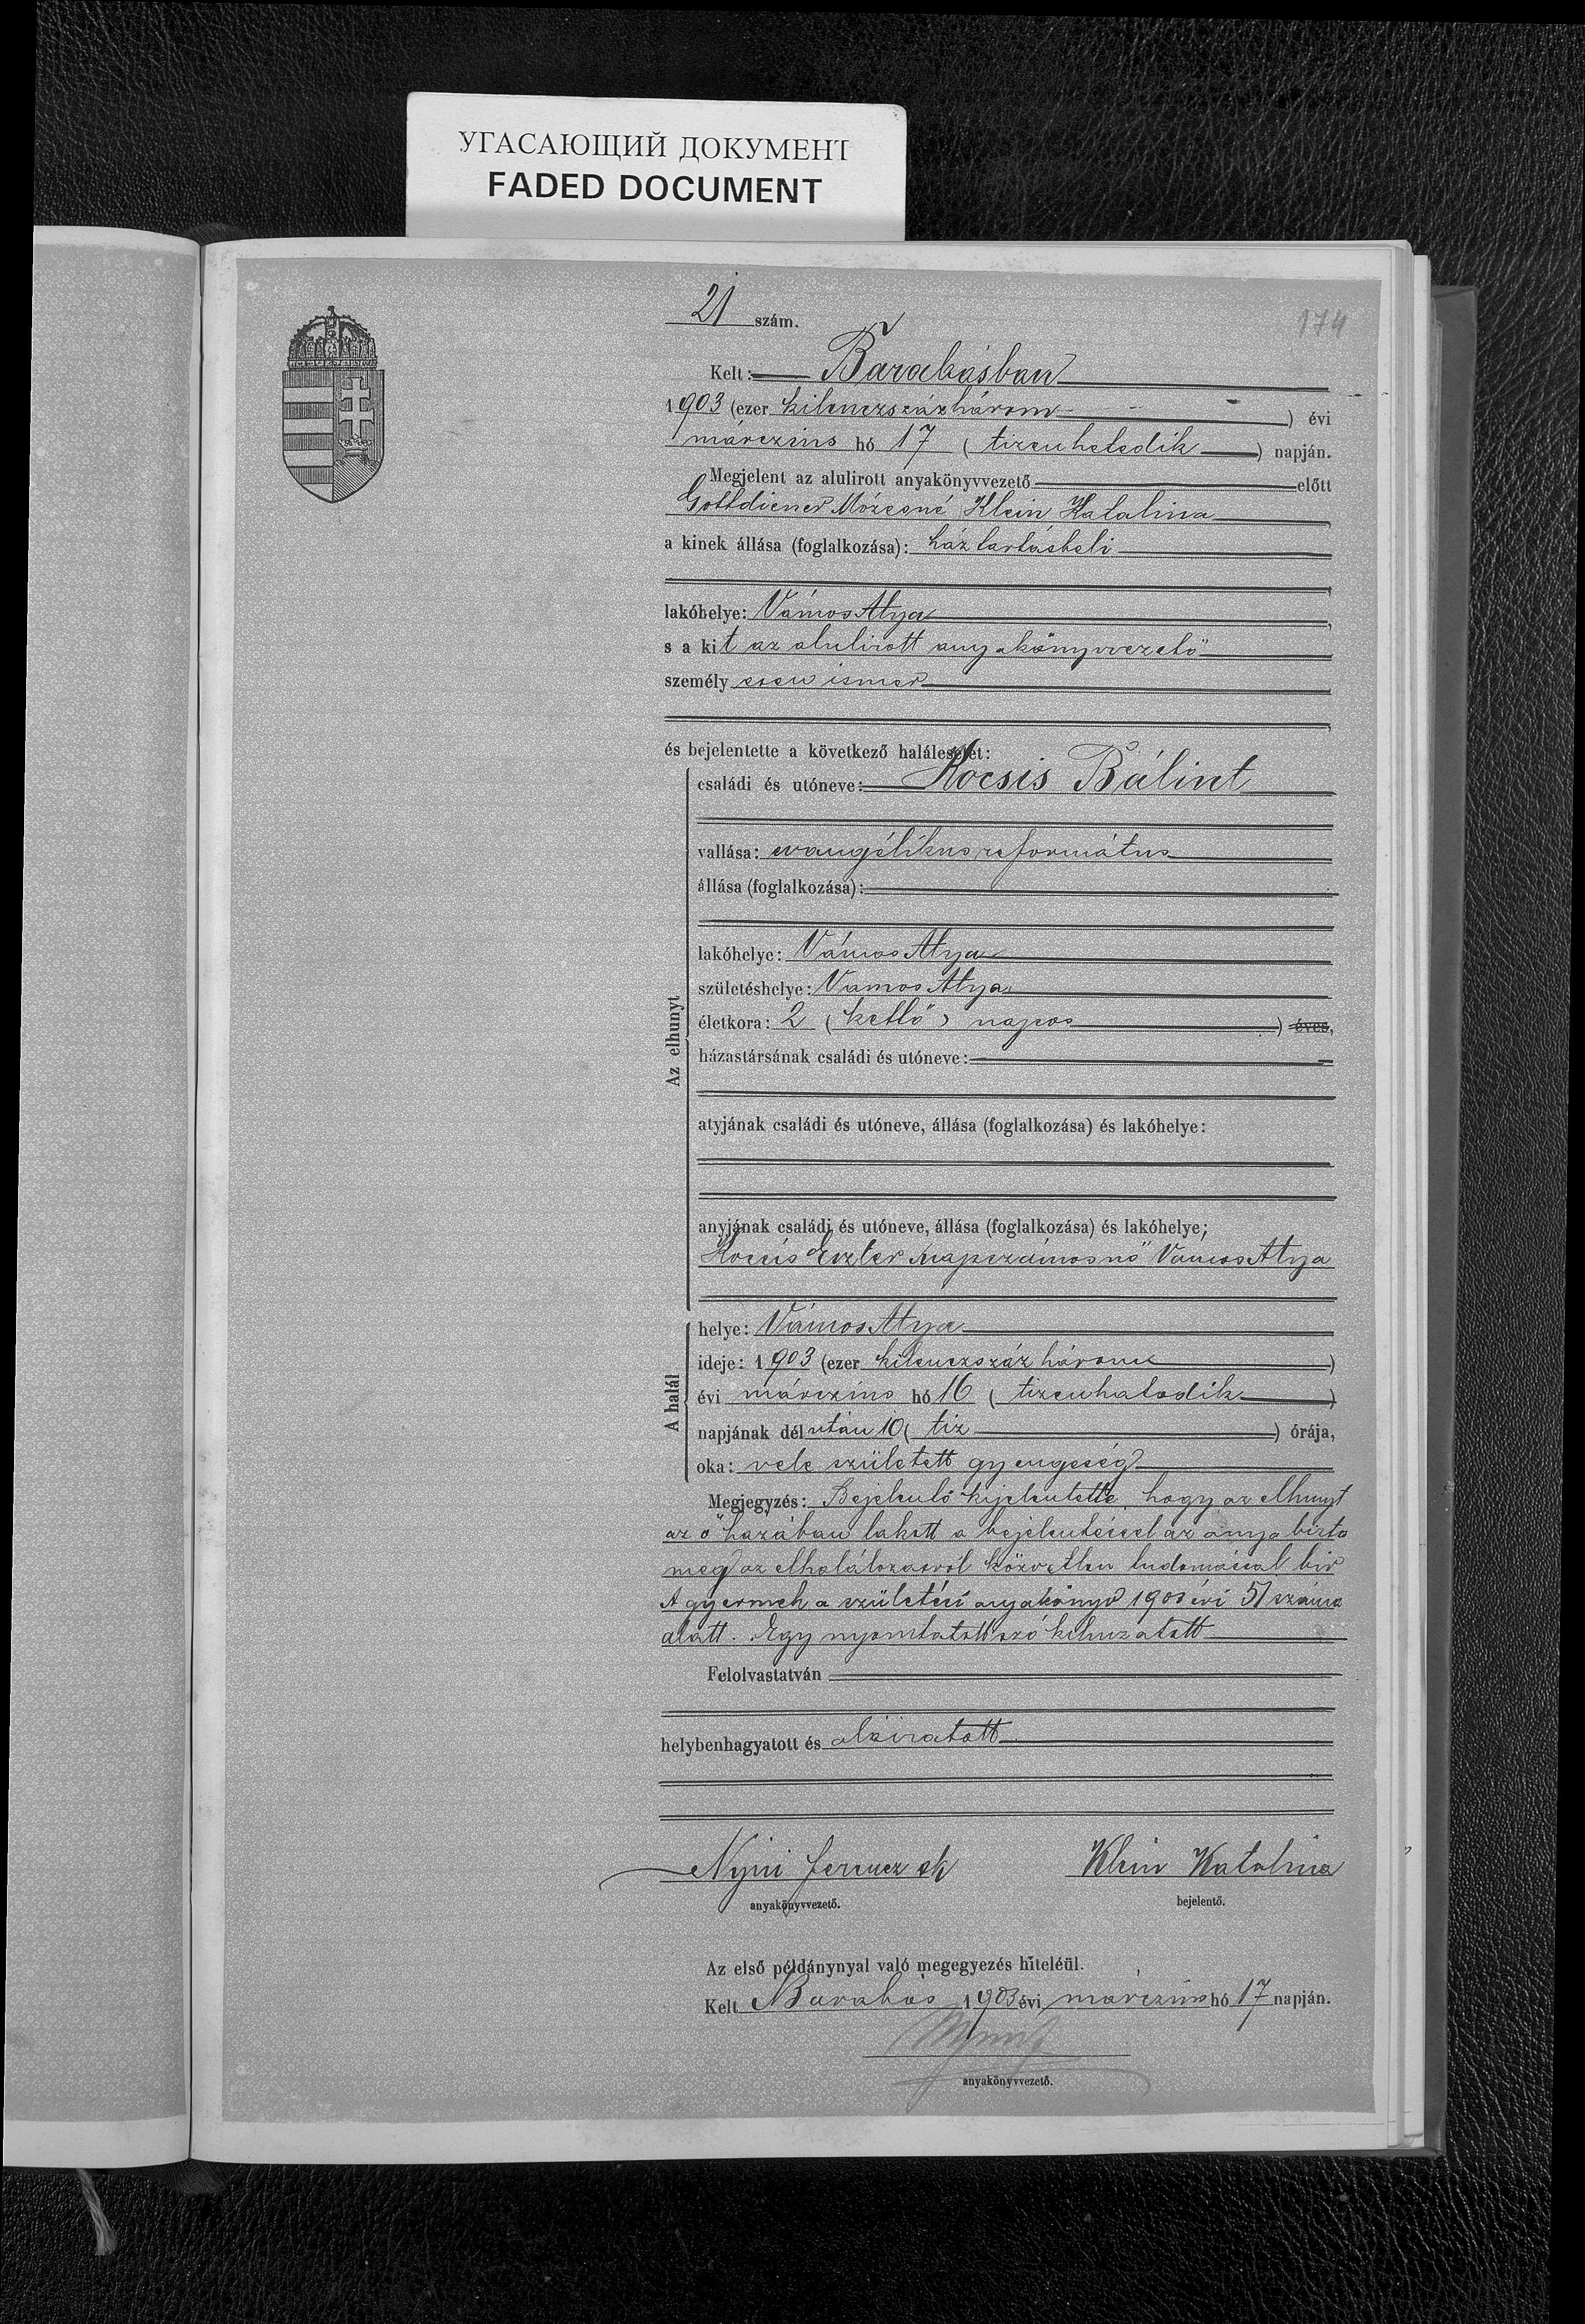 УГАСАЮЩИЙ ДОКУМЕНТ
FADED DOCUMENT
21 szám.
174
Kelt: Barabásban
1903 (ezer kilenczszázhárom) évi
márczius hó 17 (tizenhetedik) napján.
Megjelent az alulirott anyakönyvvezető előtt
Gottdiener Mózesné Klein Katalina,
a kinek állása (foglalkozása): háztartásbeli
lakóhelye: Vámos Atya,
s a kit az alulirott anyakönyvvezető
személyesen ismer
és bejelentette a következő halálesetet:
Az elhunyt
családi és utóneve: Kocsis Bálint
vallása: evangélikus református
állása (foglalkozása):
lakóhelye: Vámos Atya
születéshelye: Vamos Atya
életkora: 2 (kettő) napos ) éves,
házastársának családi és utóneve:
atyjának családi és utóneve, állása (foglalkozása) és lakóhelye:
anyjának családi és utóneve, állása (foglalkozása) és lakóhelye;
Kocsis Eszter napszámosnő Vámos Atya
A halál
helye: Vámos Atya
ideje: 1903 (ezer kilenczszáz három)
évi márczius hó 16 (tizenhatodik)
napjának délután 10 (tiz) órája,
oka: vele született gyengeség
Megjegyzés: Bejelentő kijelentette, hogy az elhunyt
az ő házában lakott a bejelentéssel az anya bizta
meg az elhalálozásról közvetlen tudomással bir
A gyermek a születési anyakönyv évi 51 száma
alatt. Egy nyomtatott szó kihuzatott
Felolvastatván
helybenhagyatott és aláiratott
Nyiri Ferencz sk
anyakönyvvezető.
Klein Katalina
bejelentő.
Az első példánynyal való megegyezés hiteléül.
Kelt Barabás 1903 évi márczius hó 17 napján.
anyakönyvvezető.